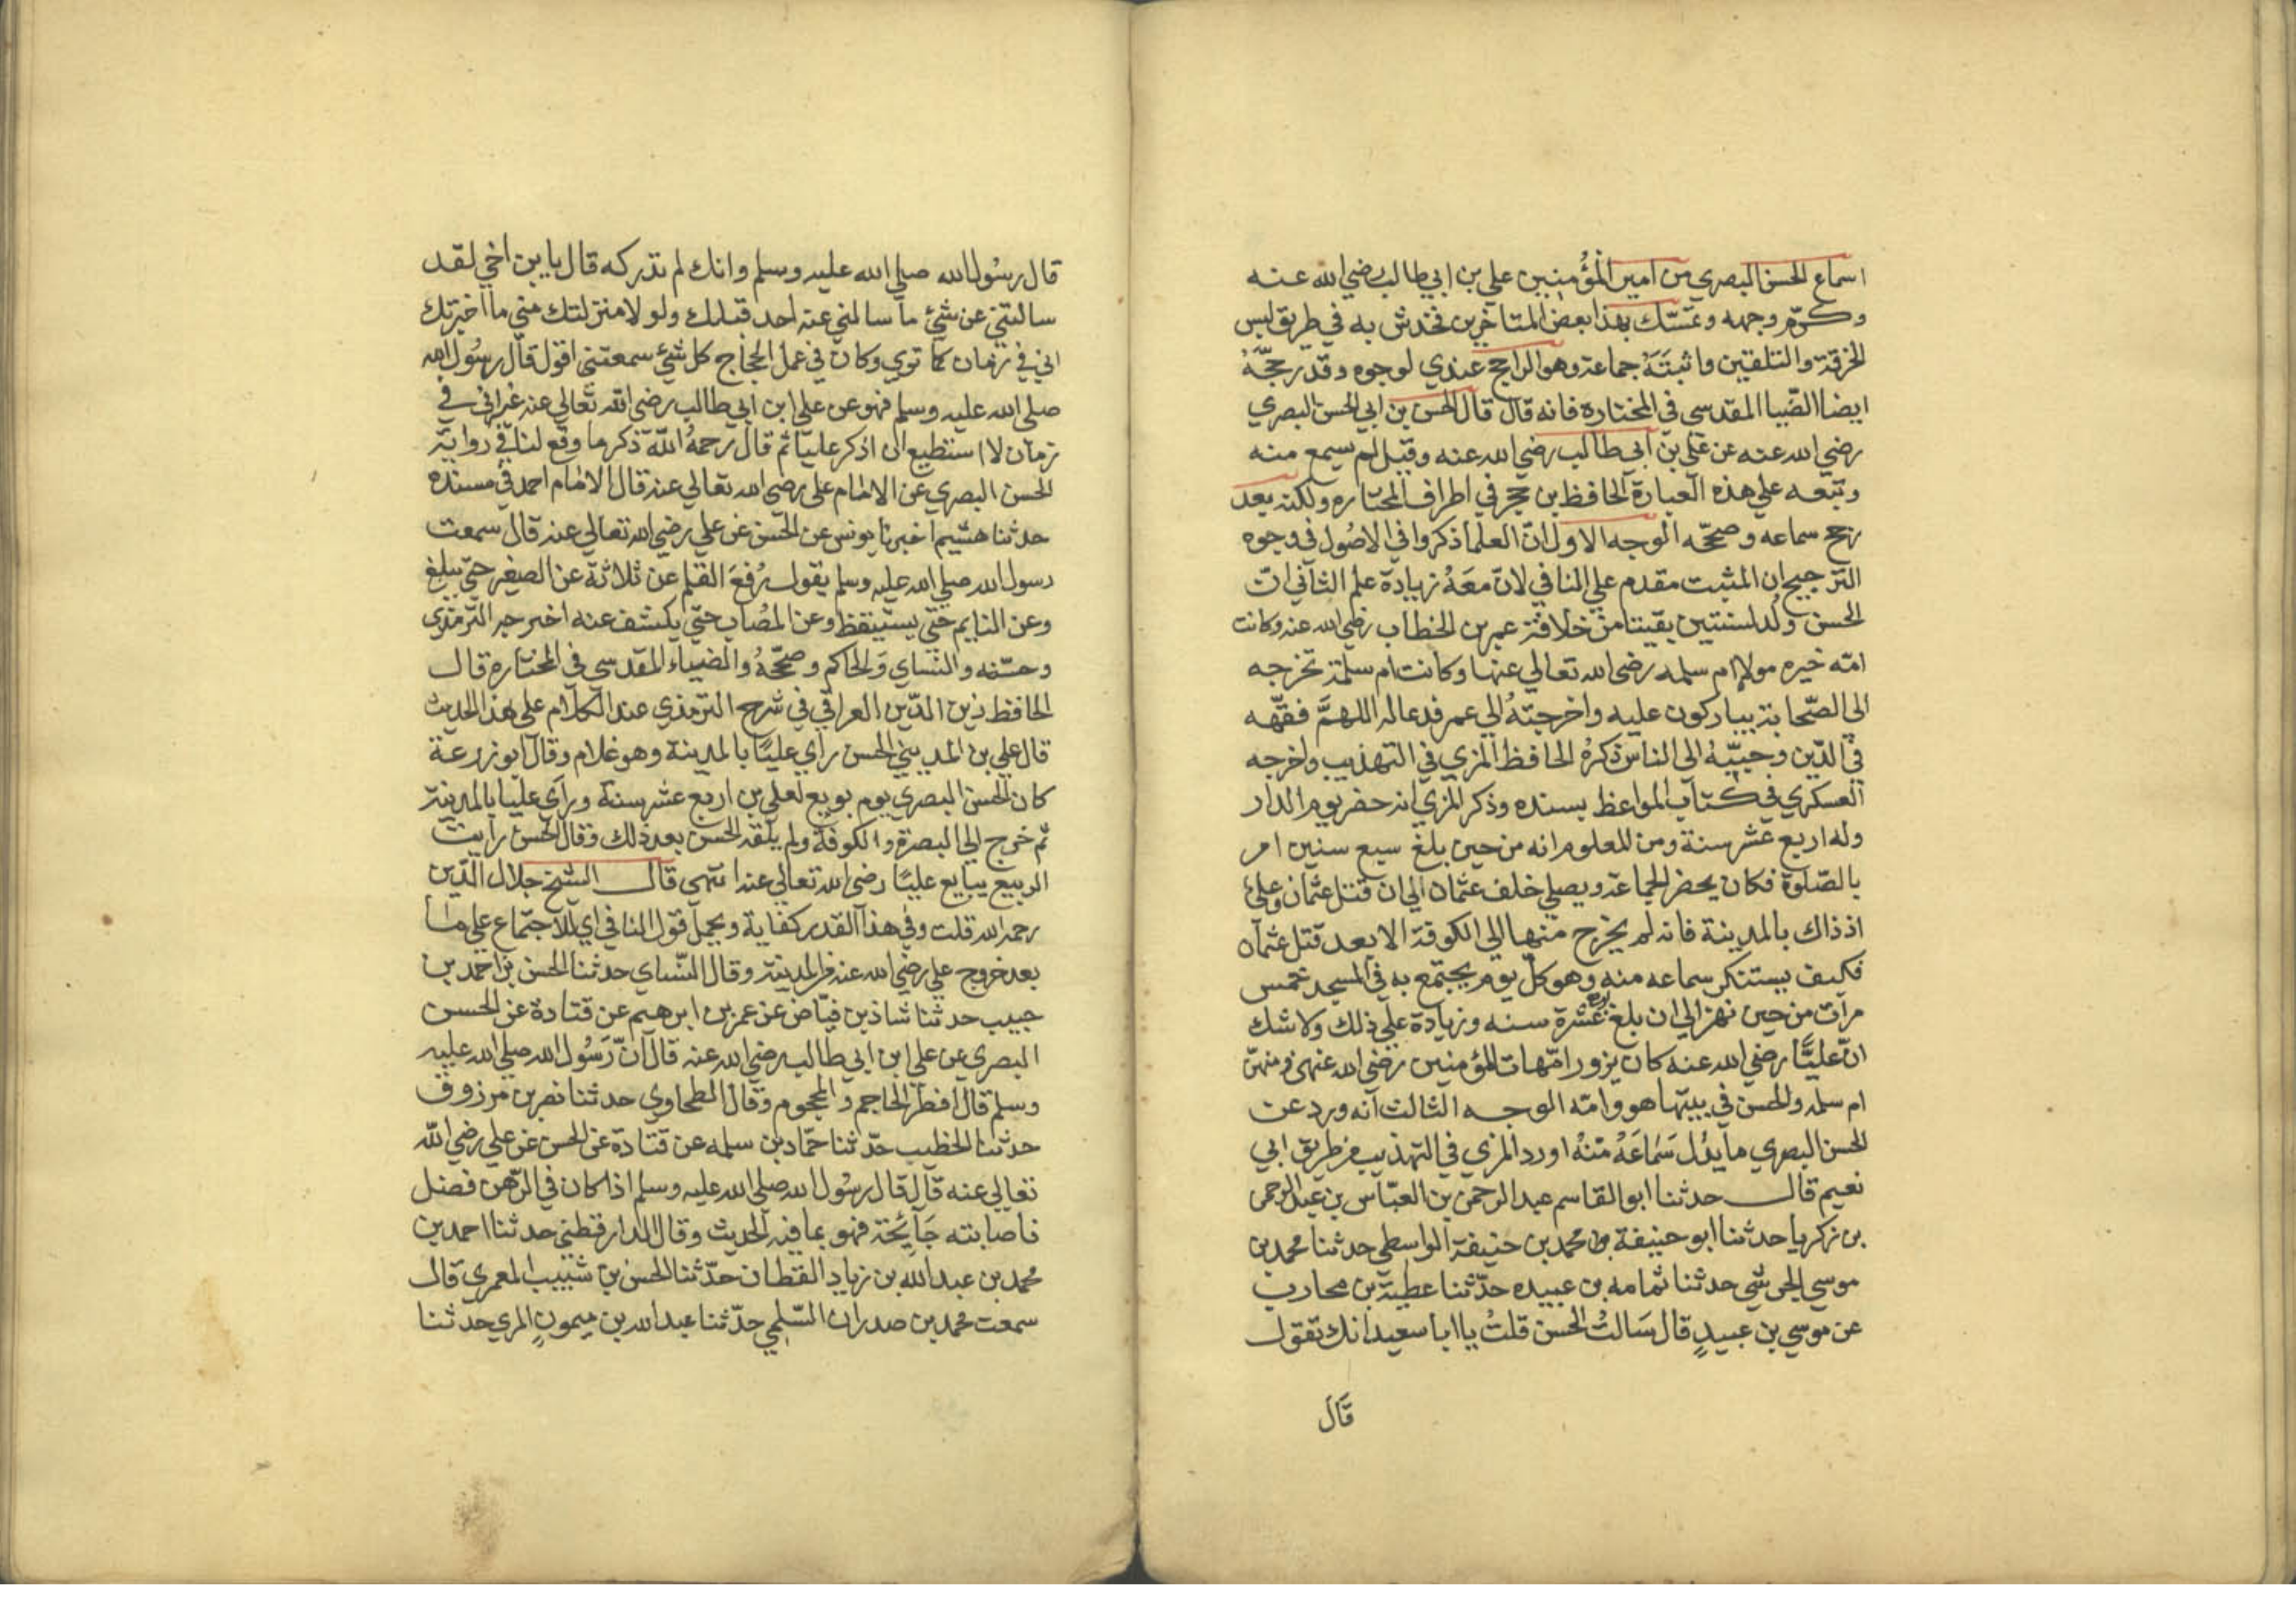 اسماع الحسن البصري من امير المؤمنين علي بن ابي طالب رضي الله عنه
وكرّم وجهه وتمسّك بهذا بعض المتاخرين فخدش به في طريق لبس
الخرقة والتلقين واثبتَهُ جماعة وهو الراجح عندي لوجوه وقد رجّحَهُ
ايضا الضّيا المقدسي في المختارة فانه قال قال الحسن بن ابي الحسن البصري
رضي الله عنه عن علي بن ابي طالب رضي الله عنه وقيل لم يسمع منه
وتبعه علي هذه العبارة الحافظ بن حجر في اطراف المختاره ولكنه بعد
رجح سماعه وصحّحه الوجه الاول انّ العلما ذكروا في الاصُول في وجوه
الترجيح ان المثبت مقدم علي النافي لانّ معَهُ زيادة علم الثاني انّ
الحسن وُلد لسنتين بقيتا من خلافة عمر بن الخطاب رضي الله عنه وكانت
امّه خيره مولاة ام سلمه رضي الله تعالي عنها وكانت ام سلمة تخرجه
الي الصّحابة يباركون عليه واخرجتهُ الي عمر فدعا له اللهمَّ فقّهه
في الدّين وحببّهُ الي الناس ذكرهُ الحافظ المزي في التهذيب واخرجه
العسكري في كتاب المواعظ بسنده وذكر المزي انه حضر يوم الدار
وله اربع عشر سنة ومن المعلوم انه من حين بلغ سبع سنين امر
بالصّلوة فكان يحضر الجماعة ويصلي خلف عثمان الي ان قتل عثمان وعلي
اذ ذاك بالمدينة فانه لم يخرج منها الي الكوفة الا بعد قتل عثمان
فكيف يستنكر سماعه منه وهو كلّ يوم يجتمع به في المسجد خمس
مرات من حين نهز الي ان بلغ اربع عشرة سنه وزيادة علي ذلك ولا شك
انّ عليًّا رضي الله عنه كان يزور امّهات المؤمنين رضي الله عنهن ومنهنّ
ام سلمه والحسن في بيتها هو وامّه الوجه الثالث انه ورد عن
الحسن البصري ما يدُل سَمَاعَهُ منْهُ اورد المزي في التهذيب من طريق ابي
نعيم قال حدثنا ابو القاسم عبد الرحمن بن العبّاس بن عبد الرحمن
بن زكريا حدثنا ابو حنيفة محمد بن حنيفة الواسطي حدثنا محمد بن
موسي الجرشي حدثنا ثمامه بن عبيده حدّثنا عطية بن محارب
عن موسي بن عبيدٍ قال سَالتُ الحسن قلتُ يا ابا سعيد انك تقول
قَالَ
قال رسُول الله صلي الله عليه وسلم وانك لم تدركه قال يا بن اخي لقد
سالتني عن شئ ما سالني عنه احد قبلك ولولا منزلتك مني ما اخبرتك
اني في زمان كما تري وكان في عمل الحجاج كل شئ سمعتني اقول قال رسُول الله
صلي الله عليه وسلم فهو عن علي ابن ابي طالب رضي الله تعالي عنه غير اني في
زمان لا استطيع ان اذكر عليّا ثم قال رحمهُ اللّه ذكر ما وقع لنا في رواية
الحسن البصري عن الامام علي رضي الله تعالي عنه قال الامام احمد في مسنده
حدثنا هشيم اخبرنا يونس عن الحسن عن علي رضي الله تعالي عنه قال سمعت
رسول الله صلي الله عليه وسلم يقول رُفعَ القلم عن ثلاثة عن الصغير حتي يبلغ
وعن النايم حتي يستيقظ وعن المصُاب حتي يكشف عنه اخرجه الترمذي
وحسّنه والنّساي والحاكم وصحّحهُ والضياء المقدسي في المختارة قال
الحافظ زين الدّين العراقي في شرح الترمذي عند الكلام علي هذا الحديث
قال علي بن المديني الحسن راي عليّا بالمدينة وهو غلام وقال ابو زرعة
كان الحسن البصري يوم بويع لعلي بن اربع عشر سنة وراي عليّا بالمدينة
ثم خرج الي البصرة والكوفة ولم يلقه الحسن بعد ذلك وقال الحسن رايت
الزبيع يبايع عليًّا رضي الله تعالي عنه انتهي قال الشيخ جلال الدّين
رحمه الله قلت وفي هذا القدر كفاية ويحمل قول النافي اي للاجتماع علي ما
بعد خروج علي رضي الله عنه من المدينة وقال النّساي حدثنا الحسن بن احمد بن
حبيب حدثنا شاذ بن فيّاض عن عمر بن ابرهيم عن قتادة عن الحسن
البصري عن علي ابن ابي طالب رضي الله عنه قال انّ رَسُول الله صلي الله عليه
وسلم قال افطر الحاجم والمحجوم وقال الطحاوي حدثنا نصر بن مرزوق
حدثنا الخطيب حدّثنا حمّاد بن سلمه عن قتادة عن الحسن عن علي رضي اللّه
تعالي عنه قال قال رسُول الله صلي الله عليه وسلم اذا كان في الرّهن فضل
فاصابته جَآئِحَة فهو بما فيه الحديث وقال الدارقطني حدثنا احمد بن
محمد بن عبد اللّه بن زياد القطان حدّثنا الحسن بن شبيب المعمري قال
سمعت محمد بن صدران السّلمي حدّثنا عبد الله بن ميمونٍ المري حدثنا